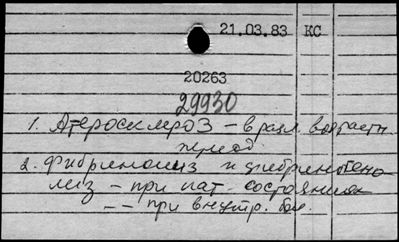 21.03.83 КС
20263
29930
1. Атеросклероз – в разл. возрастн.
период
2. Фибринолиз и фибриногено
лиз – при пат. состояниях
– – при внутр. бол.